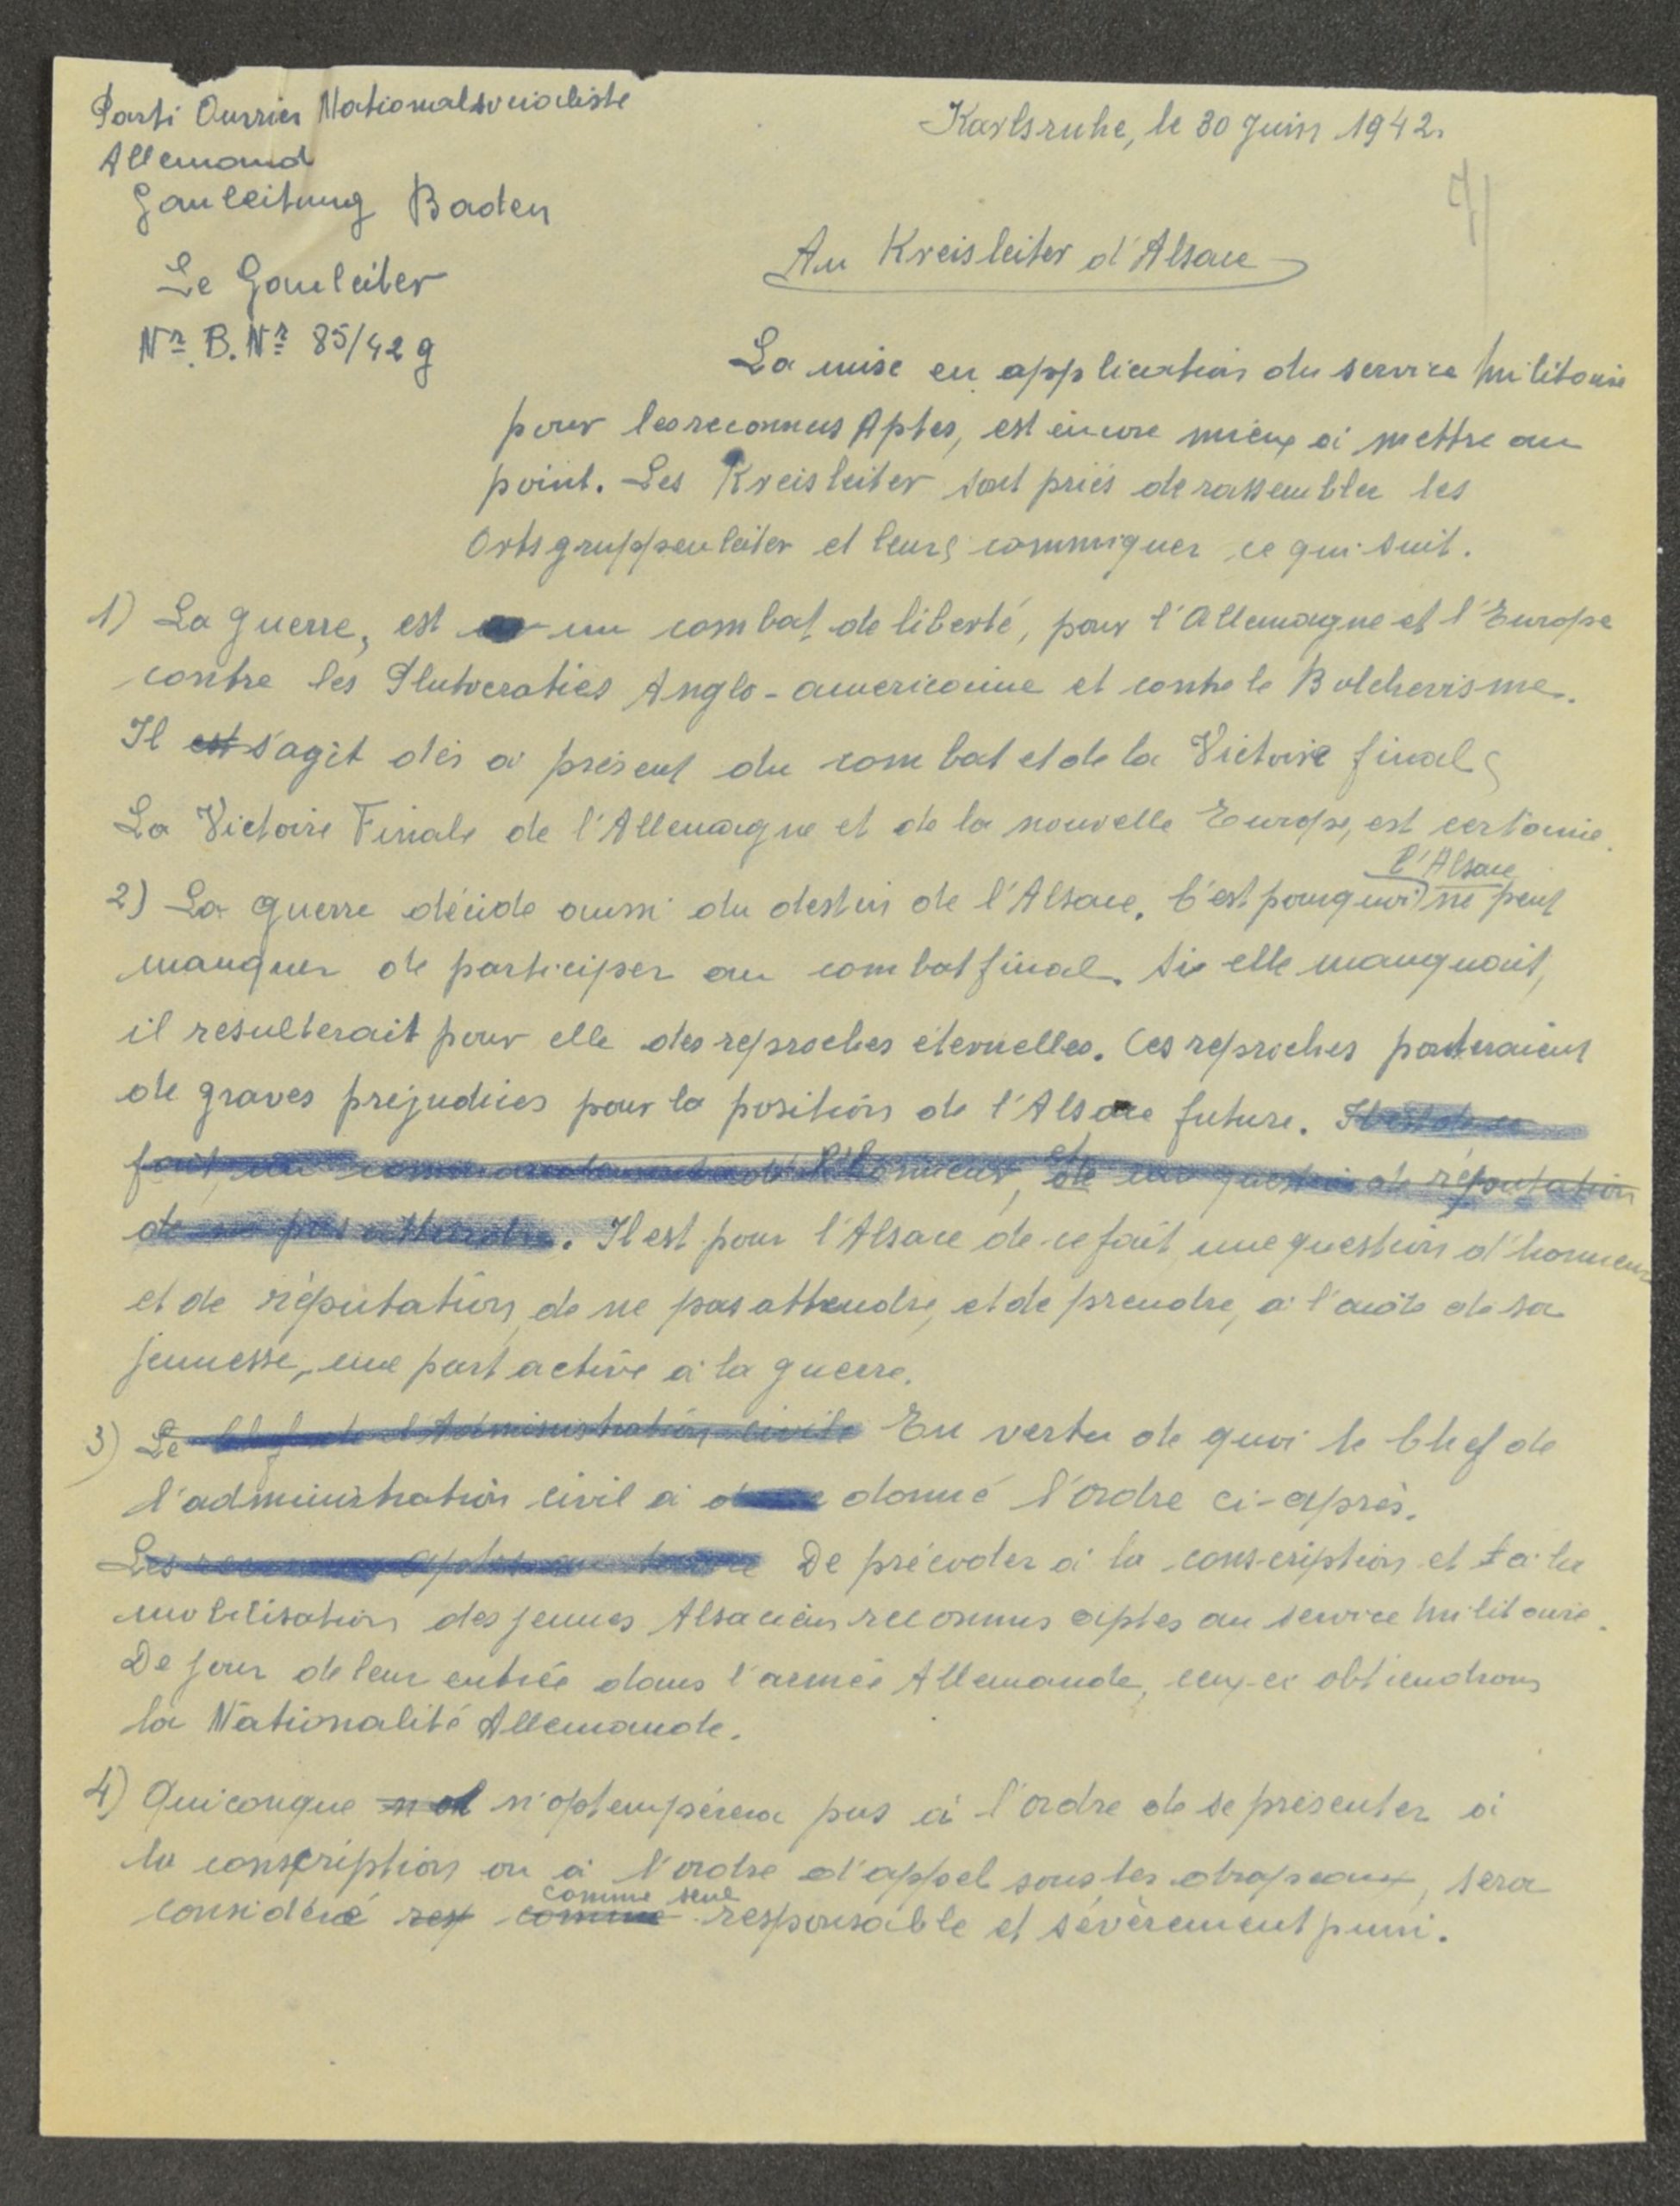 Parti Ouvrier Nationalsocialiste
Allemand
Gauleitung Baden
Le Gauleiter
Nr. B. Nr 85/42 g
Karlsruhe, le 30 Juin 1942.
Au Kreisleiter d'Alsace
La mise en application du service Militaire
pour les reconnus Aptes, est encore mieux à mettre au
point. Les Kreisleiter sont priés de rassembler les
Ortsgruppenleiter et leurs commniquer ce qui suit.
1) La guerre, est un combat de liberté, pour l'Allemagne et l'Europe
contre les Plutocraties Anglo-americaine et contre le Bolchevisme.
Il est s'agit dès à présent du combat et de la Victoire final
La Victoire Finale de l'Allemagne et de la nouvelle Europe, est certaine.
l'Alsace
2) La guerre décide aussi du destin de l'Alsace. C'est pourquoi ne peut
manquer de participer au combat final. Si elle manquait,
il resulterait pour elle des reproches éternelles. Ces reproches porteraient
de graves prejudices pour la position de l'Alsace future. Il est de ce
fait, une l'honneur, et de une question de réputation
de ne pas attendre. Il est pour l'Alsace de ce fait une question d'honneur
et de réputation, de ne pas attendre, et de prendre, à l'aide de sa
jeunesse, une part active à la guerre.
3) Le Chef de l'Administration civile En vertu de quoi le Chef de
l'administration civil à donné l'ordre ci-après.
Les reconnus aptes au De précoder à la conscription et à la
mobilisation des jeunes Alsaciens reconnus aptes au service Militaire.
De jour de leur entrée dans l'armée Allemande, ceux-ci obtiendrons
la Nationalité Allemande.
4) Quiconque n'optempérera pas à l'ordre de se présenter à
la conscription ou à l'ordre d'appel sous les drapeaux, sera
comme seul
considéré res comme responsable et sévèrement puni.